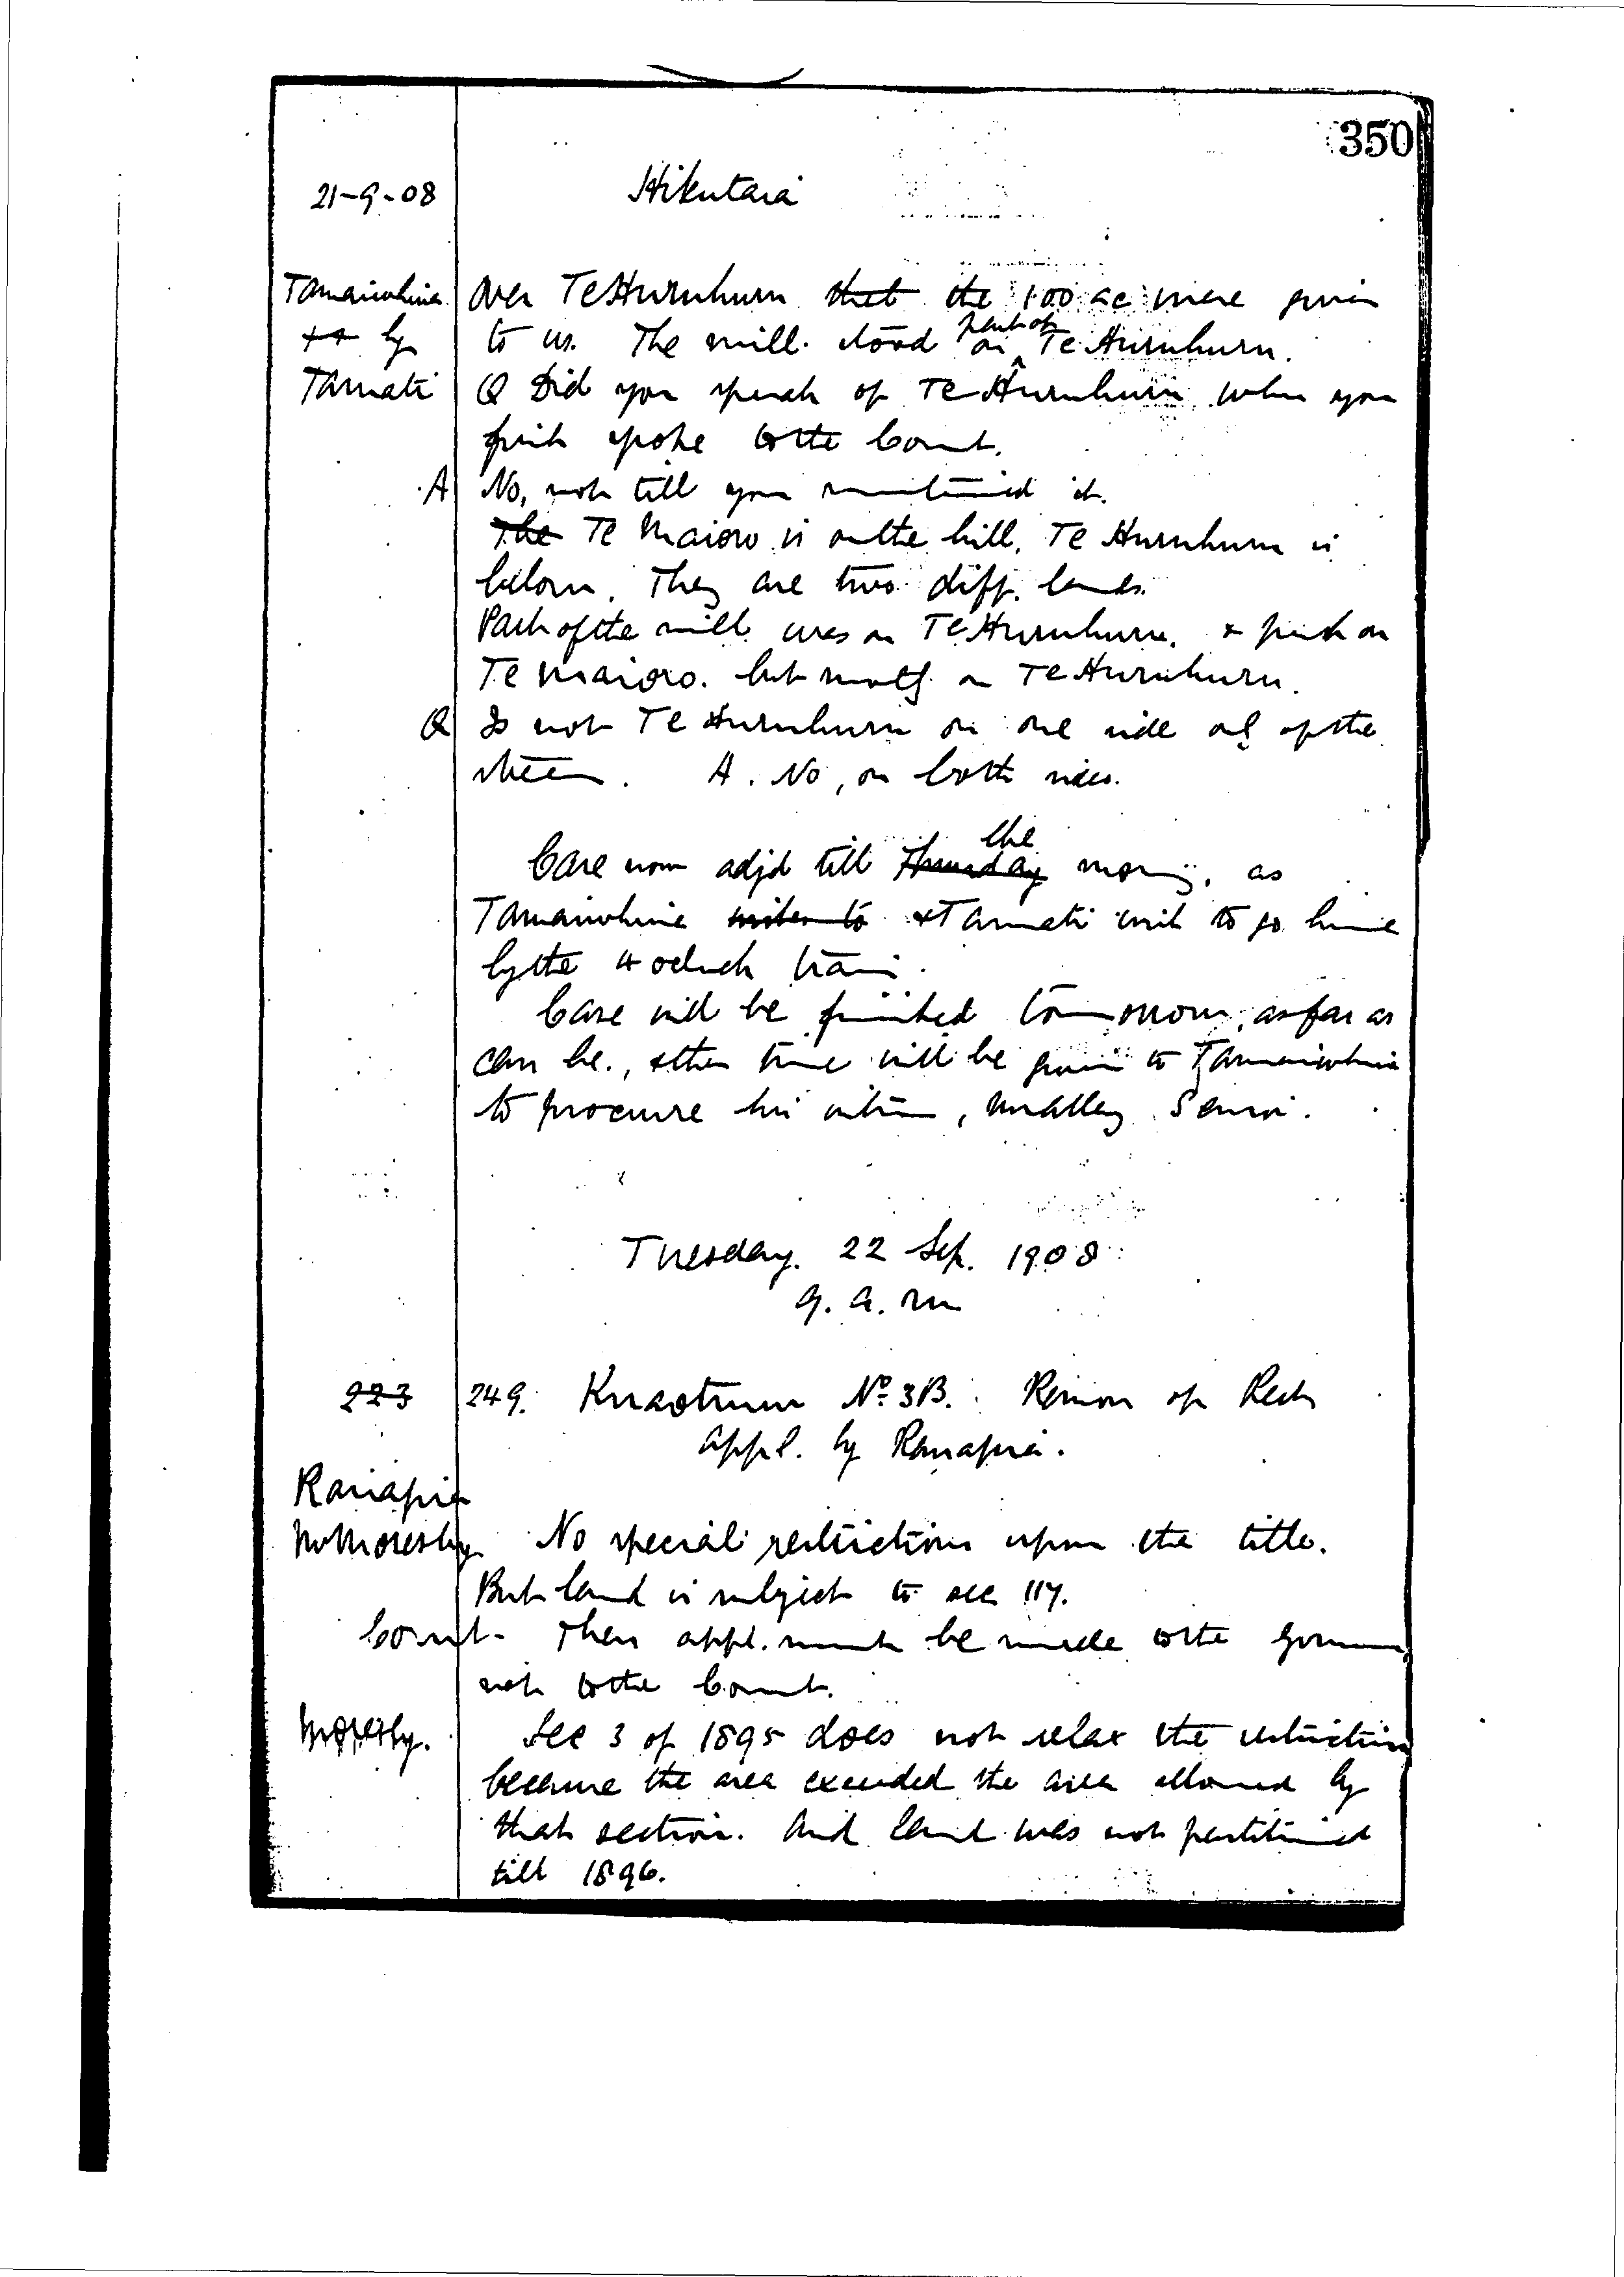 350
21-9-08 Hikutaia
Tamaiwhina over Te Huruhuru that the 100 ac were given
xx by to us. The mill stood on part of Te Huruhuru.
Tamati Q Did you speak of Te Huruhuru when you
first spoke to the Court.
A No, not till you mentioned it.
The Te Maioro is on the hill. Te Huruhuru is
below. They are two diff. lands.
Part of the mill was on Te Huruhuru. & part on
Te Maioro. but mostly on Te Huruhuru.
Q Is not Te Huruhuru on one side only of the
stream. A. No, on both sides.
Case now adjd till Thursday the morning, as
Tamaiwhina wishes to & Tamati wish to go home
by the 4 oclock train.
Case will be finished tomorrow, as far as
can be., & then time will be given to Tamaiwhina
to procure his witness,
Tuesday. 22 Sep. 1908
9. a. m
223 249. No 3B. of Rest
appl. by Ranapia.
Ranapia
Mr Moresby No special restrictions upon the title.
But land is subject to sec 117.
Court- Then appl. must be made to the Governor
not to the Court.
Moresby. Sec 3 of 1895 does not relax the restriction
because the area exceeded the area allowed by
that section. And land was not partitioned
till 1896.